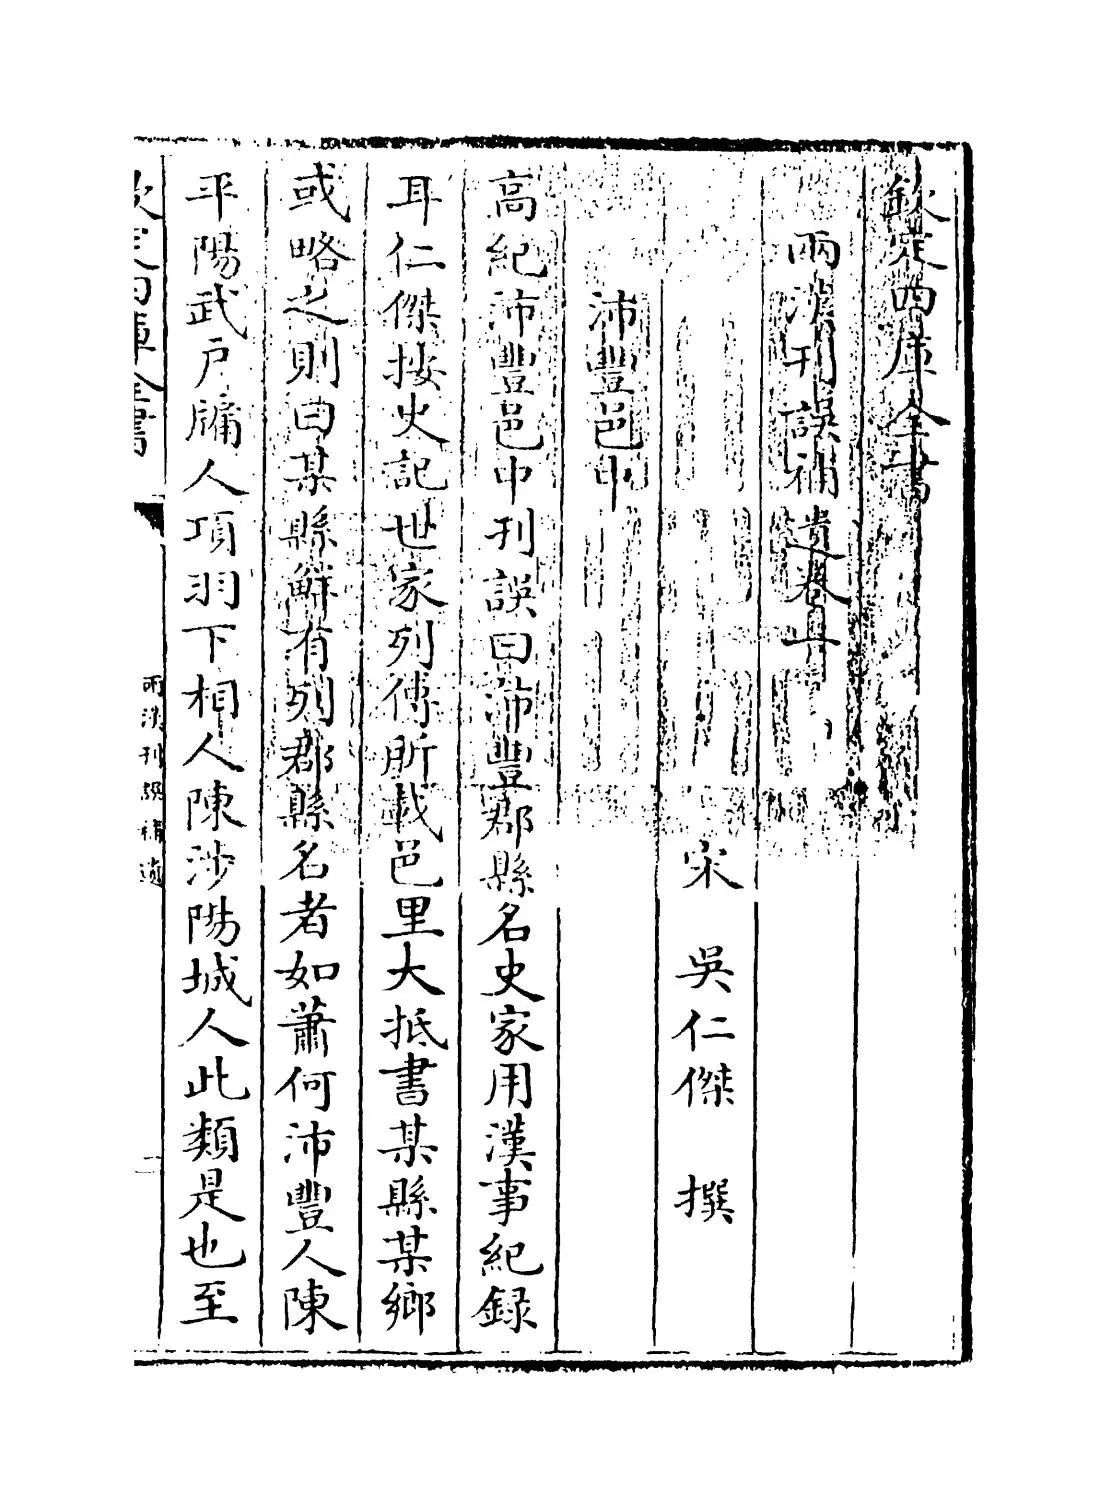 欽定四庫全書
兩漢刊誤補遺卷一
宋 吳仁傑 撰
沛豐邑中
高紀沛豐邑中刊誤曰沛豐郡縣名史家用漢事紀錄
耳仁傑按史記世家列傳所載邑里大抵書某縣某鄉
或略之則曰某縣鮮有列郡縣名者如蕭何沛豐人陳
平陽武戶牖人項羽下相人陳涉陽城人此類是也至
欽定四庫全書
兩漢刊誤補遺